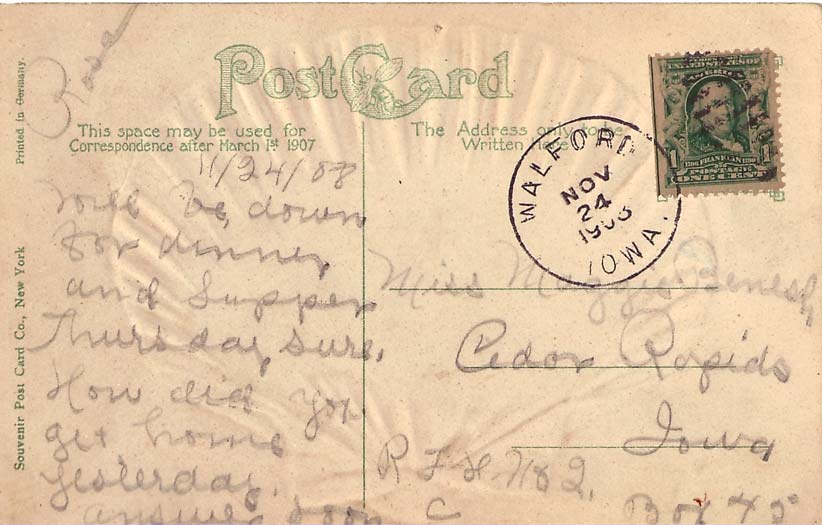 Rosa
Printed in Germany.
Souvenir Post Card Co., New York
Post Card
This space may be used for
Correspondence after March 1st 1907
The Address only to be
Written Here
11/24/08
Will be down
for dinner
and Supper
Thursday sure.
How did you
get home
yesterday.
answer soon
WALFORD
NOV
24
1908
IOWA.
UNITED STATES OF
AMERICA
1
1706 FRANKLIN 1790
1
POSTAGE
ONE CENT
Miss Maggie Benesh
Cedar Rapids
Iowa
R F D No 2.
C
Box 45